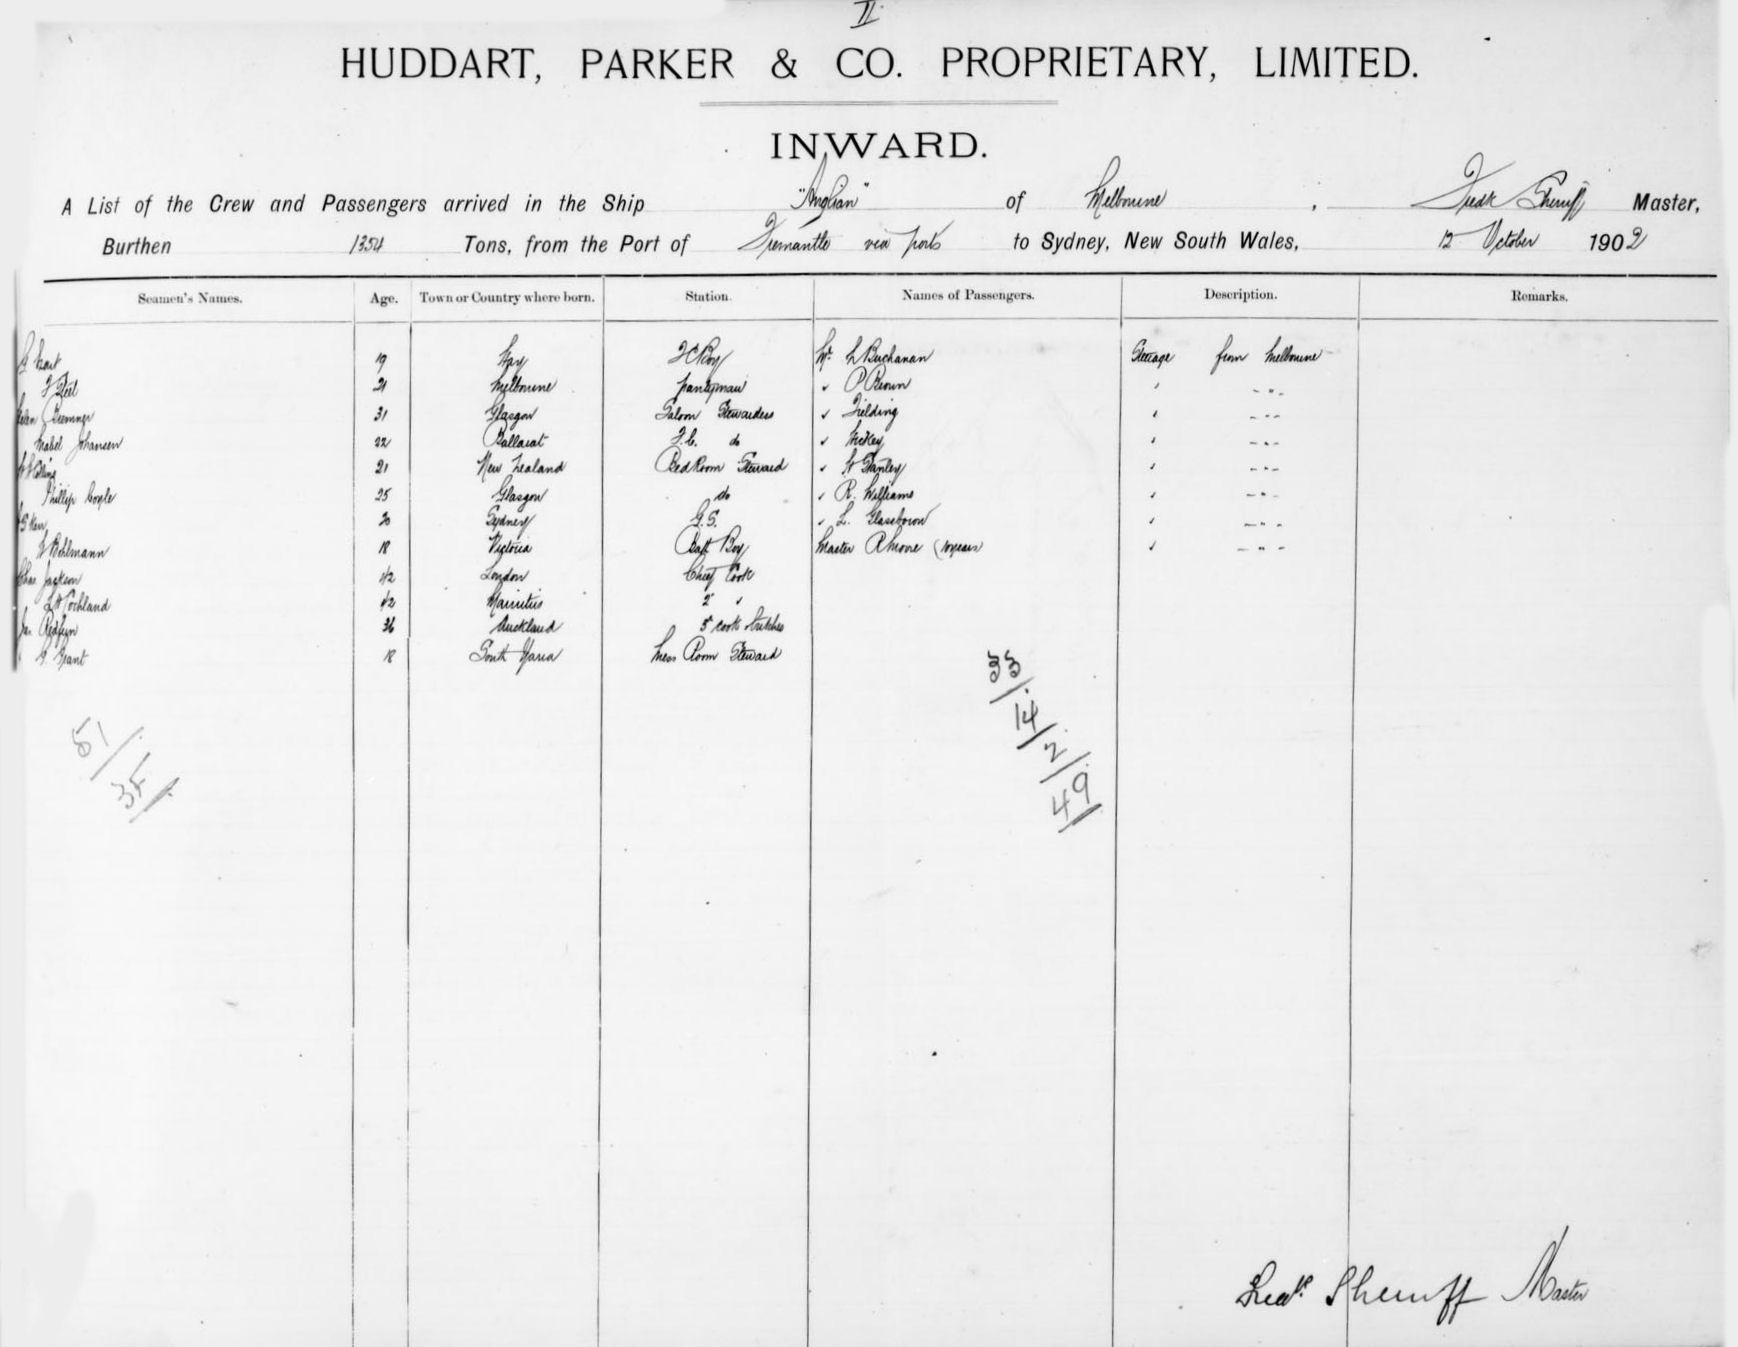 II
HUDDART, PARKER & CO. PROPRIETARY, LIMITED.
INWARD.
A List of the Crew and Passengers arrived in the Ship "Anglian" of Melbourne, Fredk Sherriff Master,
Burthen 1354 Tons, from the Port of Fremantle via ports to Sydney, New South Wales, 12 October 1902
Seamen's Names. Age. Town or Country where born. Station. Names of Passengers. Description. Remarks.
19 F C Boy Mr L Buchanan Steerage from Melbourne
21 Melbourne Pantryman " P Brown " - " -
31 Glasgow Saloon Stewardess " Fielding " - " -
Mabel Johansen 22 Ballarat F.C. do " " - " -
21 New Zealand Bed Room Steward " Stanley " - " -
Phillip Coyle 25 Glasgow do " R. Williams " - " -
Kerr 20 Sydney G.S. " L. " - " -
18 Victoria Boy Master R Moore (10 years) " - " -
Chas Jackson 42 London Chief Cook
42 Mauritius 2d "
Jas 36 Auckland 3d Cook & Butcher
G. Grant 18 South Yarra Mess Room Steward
33
14
2
49
51
35
Fredk Sherriff Master